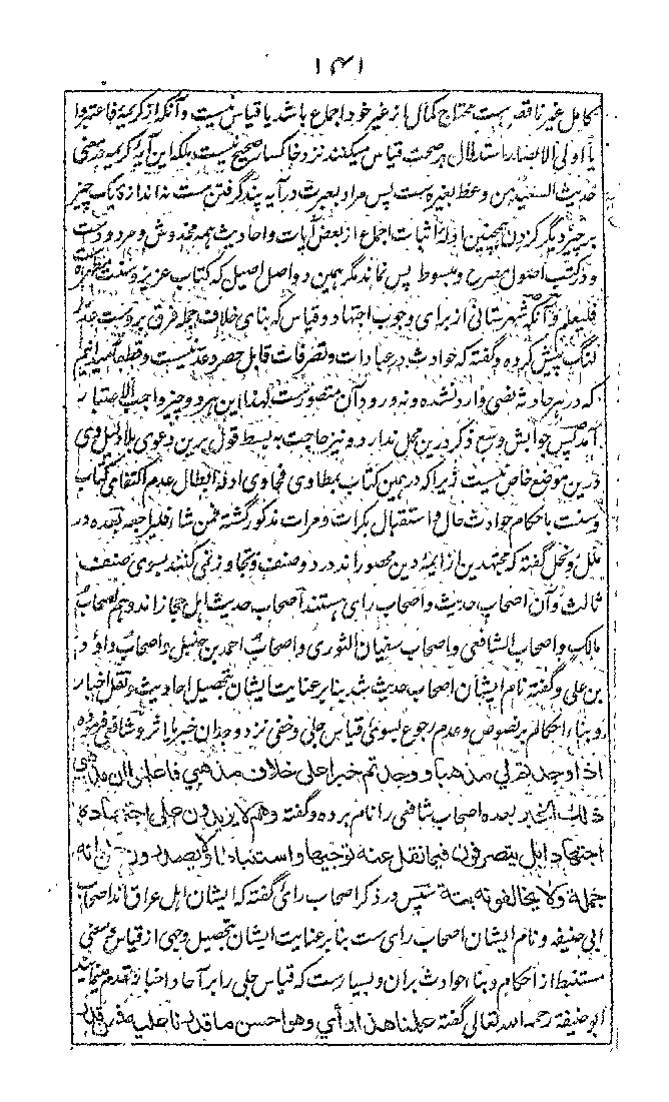 ۱۴۱
کامل غیر ناقص ست محتاج کمال از غیر خود اجماع باشد یا قیاس نیست و آنکه از کریمۀ فاعتبروا
یا اولی الابصار استدلال بر صحت قیاس میکنند نزد خاکسار صحیح نیست بلکه این آیۀ کریمه در معنی
حدیث السعید من وعظ بغیره ست پس مراد بعبرت در آیه پند گرفتن ست نه اندازه یک چیز
بر چیز دیگر کردن همچنین ادلۀ اثبات اجماع از بعض آیات و احادیث همه مخدوش و مردودست
و در کتب اصول مصرح و مبسوط پس نماند مگر همین دو اصل اصیل که کتاب عزیز و سنت مطهره است
فلیعلم و آنکه شهرستانی از برای وجوب اجتهاد و قیاس که بنای خلاف جمله فرق بروست عذر
لنگ پیش کرده و گفته که حوادث در عبادات و تصرفات قابل حصر و عد نیست و قطعا میدانیم
که در هر حادثه نصی وارد نشده و نه ورود آن متصورست لهذا این هر دو چیز واجب الاعتبار
آمد پس جوابش وسع ذکر درین محل ندارد و نیز حاجت به بسط قول برین دعوی بلا دلیل وی
درین موضع خاص نیست زیرا که در همین کتاب مطاوی فحاوی ادلۀ ابطال عدم اکتفای کتاب
و سنت باحکام حوادث حال و استقبال بکرات و مرات مذکور گشته فمن شاء فلیراجعه بعده در
ملل و نحل گفته که مجتهدین از ایمۀ دین محصور اند در دو صنف و تجاوز نمی کنند بسوی صنف
ثالث و آن اصحاب حدیث و اصحاب رای هستند اصحاب حدیث اهل حجاز اند و هم اصحاب
مالک و اصحاب الشافعی و اصحاب سفیان الثوری و اصحاب احمد بن حنبل و اصحاب داؤد
بن علی و گفته نام ایشان اصحاب حدیث شد بنابر عنایت ایشان بتحصیل احادیث و نقل اخبار
و بناء احکام بر نصوص و عدم رجوع بسوی قیاس جلی و خفی نزد وجدان خبر یا اثر و شافعی فرموده
اذا وجدتم لی مذهبا و وجدتم خبرا علی خلاف مذهبی فاعلموا ان مذهبی
ذلک الخبر بعده اصحاب شافعی را نام برده و گفته و هم لا یزیدون علی اجتهاده
اجتهادا بل یتصرفون فیما نقل عنه توجیها و استنباطا و لا یصدرون عن رایه
جملة و لا یخالفونه بتة سپس در ذکر اصحاب رای گفته که ایشان اهل عراق اند اصحاب
ابی حنیفه و نام ایشان اصحاب رای ست بنابر عنایت ایشان بتحصیل وجهی از قیاس و معنی
مستنبط از احکام و بناء حوادث بران و بسیارست که قیاس جلی را بر آحاد اخبار تقدم میدهند
ابو حنیفة رحمه الله تعالی گفته علمنا هذا رأی و هو احسن ما قدرنا علیه فمن قدر